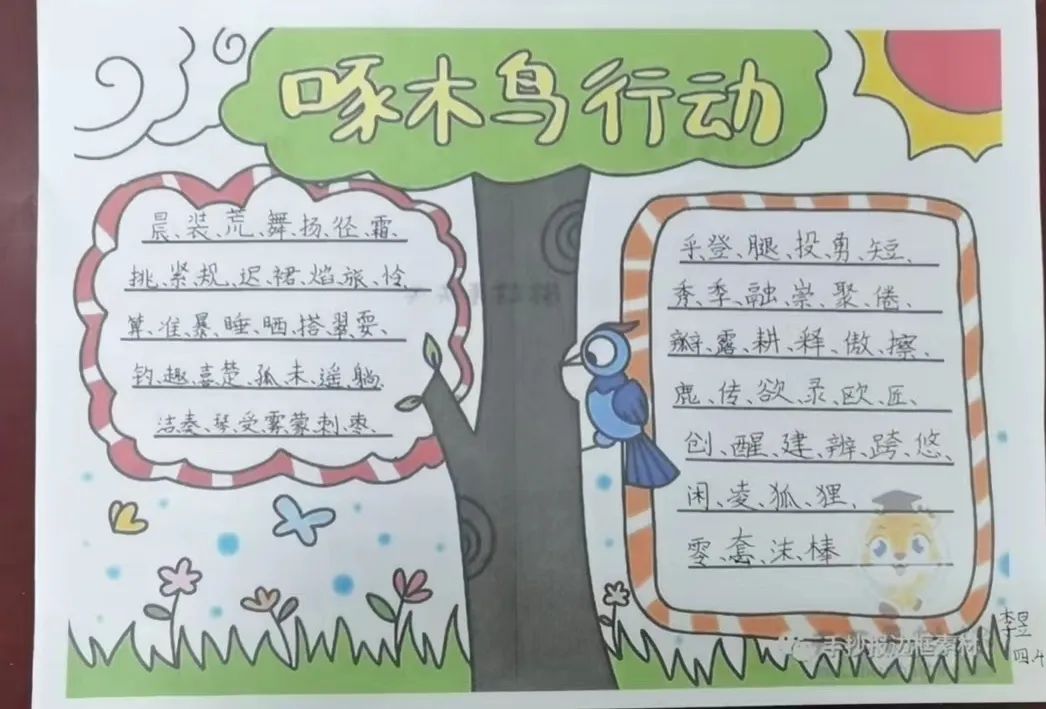 啄木鸟行动
晨、装、荒、舞、扬、径、霜、
挑、紧、规、迟、裙、焰、旅、怜、
算、准、暴、睡、晒、搭、翠、耍、
钓、趣、喜、楚、孤、未、遥、躺、
洁、奏、琴、受、雾、蒙、刺、枣、
乎、登、腿、投、勇、短、
秀、季、融、崇、聚、倦、
瓣、露、耕、释、傲、擦、
鹿、传、欲、录、欧、匠、
创、醒、建、辨、跨、悠、
闲、凌、狐、狸、
零、套、沫、棒
手抄报边框素材
李昱